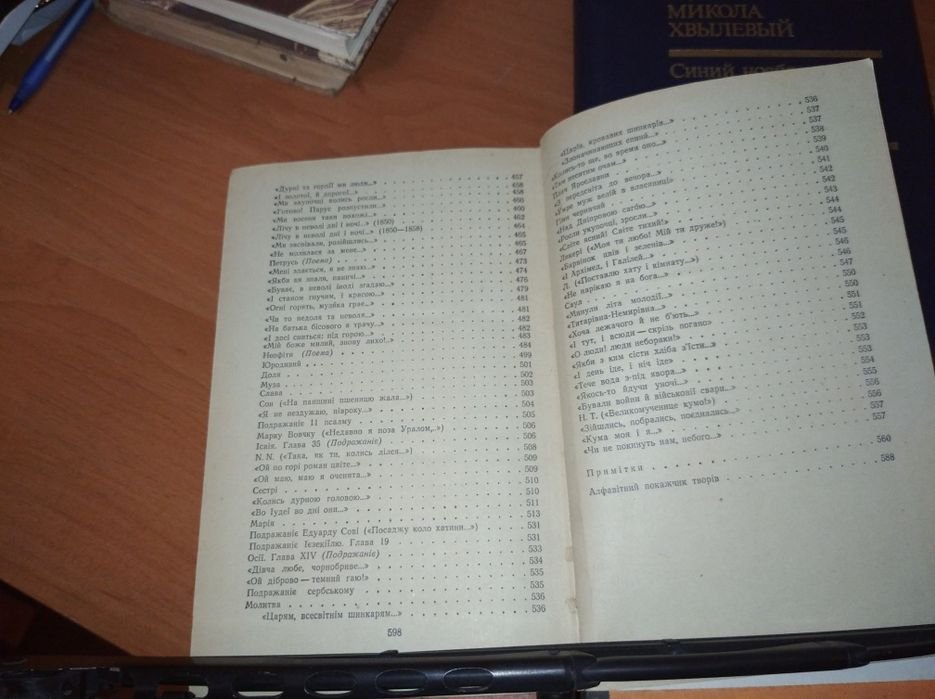 МИКОЛА
ХВЫЛЕВЫЙ
Синий
«Дурні та горді ми люди...» 457
«І золотої, й дорогої...» 458
«Ми вкупочці колись росли...» 458
«Готово! Парус розпустили...» 460
«Ми восени таки похожі...» 460
«Лічу в неволі дні і ночі...» (1850) 462
«Лічу в неволі дні і ночі...» (1850—1858) 464
«Ми заспівали, розійшлись...» 465
«Не молилася за мене...» 467
Петрусь (Поема) 473
«Мені здається, я не знаю... 474
«Якби ви знали, паничі... 476
«Буває, в неволі іноді згадаю...» 479
«І станом гнучим, і красою...» 481
«Огні горять, музика грає...»
«Чи то недоля та неволя...» 481
«На батька бісового я трачу...» 482
«І досі сниться: під горою...» 482
«Мій боже милий, знову лихо!..» 483
Неофіти (Поема) 484
Юродивий 499
Доля 501
Муза 502
Слава 503
Сон («На панщині пшеницю жала...») 503
«Я не нездужаю, нівроку...» 504
Подражаніє 11 псалму 505
Марку Вовчку («Недавно я поза Уралом...») 506
Ісаія. Глава 35 (Подражаніє) 506
N. N. («Така, як ти, колись лілея...») 508
«Ой по горі роман цвіте...» 509
«Ой маю, маю я оченята...» 509
Сестрі 510
«Колись дурною головою...» 510
«Во Іудеї во дні они...» 511
Марія 513
Подражаніє Едуарду Сові («Посаджу коло хатини...») 531
Подражаніє Ієзекіїлю. Глава 19 531
Осії. Глава XIV (Подражаніє) 533
«Дівча любе, чорнобриве...» 534
«Ой діброво — темний гаю!» 535
Подражаніє сербському 535
Молитва 536
«Царям, всесвітнім шинкарям...» 536
598
«Царів, кровавих шинкарів...» 536
«Злоначинающих спини...» 537
«Колись-то ще, во время оно...» 537
«Тим неситим очам...» 538
Плач Ярославни 539
«З передсвіта до вечора...» 540
«Умре муж велій в власяниці» 541
Гімн черничий 542
«Над Дніпровою сагою...» 542
«Росли укупочці, зросли...» 543
«Світе ясний! Світе тихий!» 544
Ликері («Моя ти любо! Мій ти друже!») 544
«Барвінок цвів і зеленів... 545
«І Архімед, і Галілей...» 545
Л. («Поставлю хату і кімнату...») 546
«Не нарікаю я на бога... 546
Саул 547
«Минули літа молодії...» 550
«Титарівна-Немирівна... 550
«Хоча лежачого й не б'ють...» 551
«І тут, і всюди — скрізь погано» 551
«О люди! люди небораки!» 552
«Якби з ким сісти хліба з'їсти...» 553
«І день іде, і ніч іде» 553
«Тече вода з-під явора...» 553
«Якось-то йдучи уночі...» 554
«Бували войни й військовії свари...» 555
Н. Т. («Великомученице кумо!») 555
«Зійшлись, побрались, поєднались...» 556
«Кума моя і я...» 556
«Чи не покинуть нам, небого...» 557
557
Примітки 560
Алфавітний покажчик творів 588